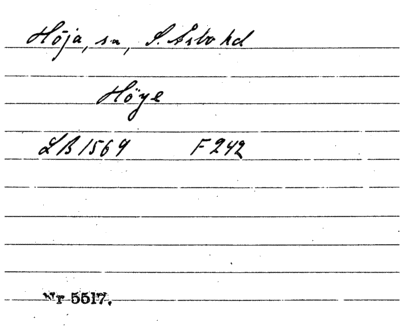 Höja, sn, S. Åsbo hd
Höye
LB 1569 F 242
Nr 5517.